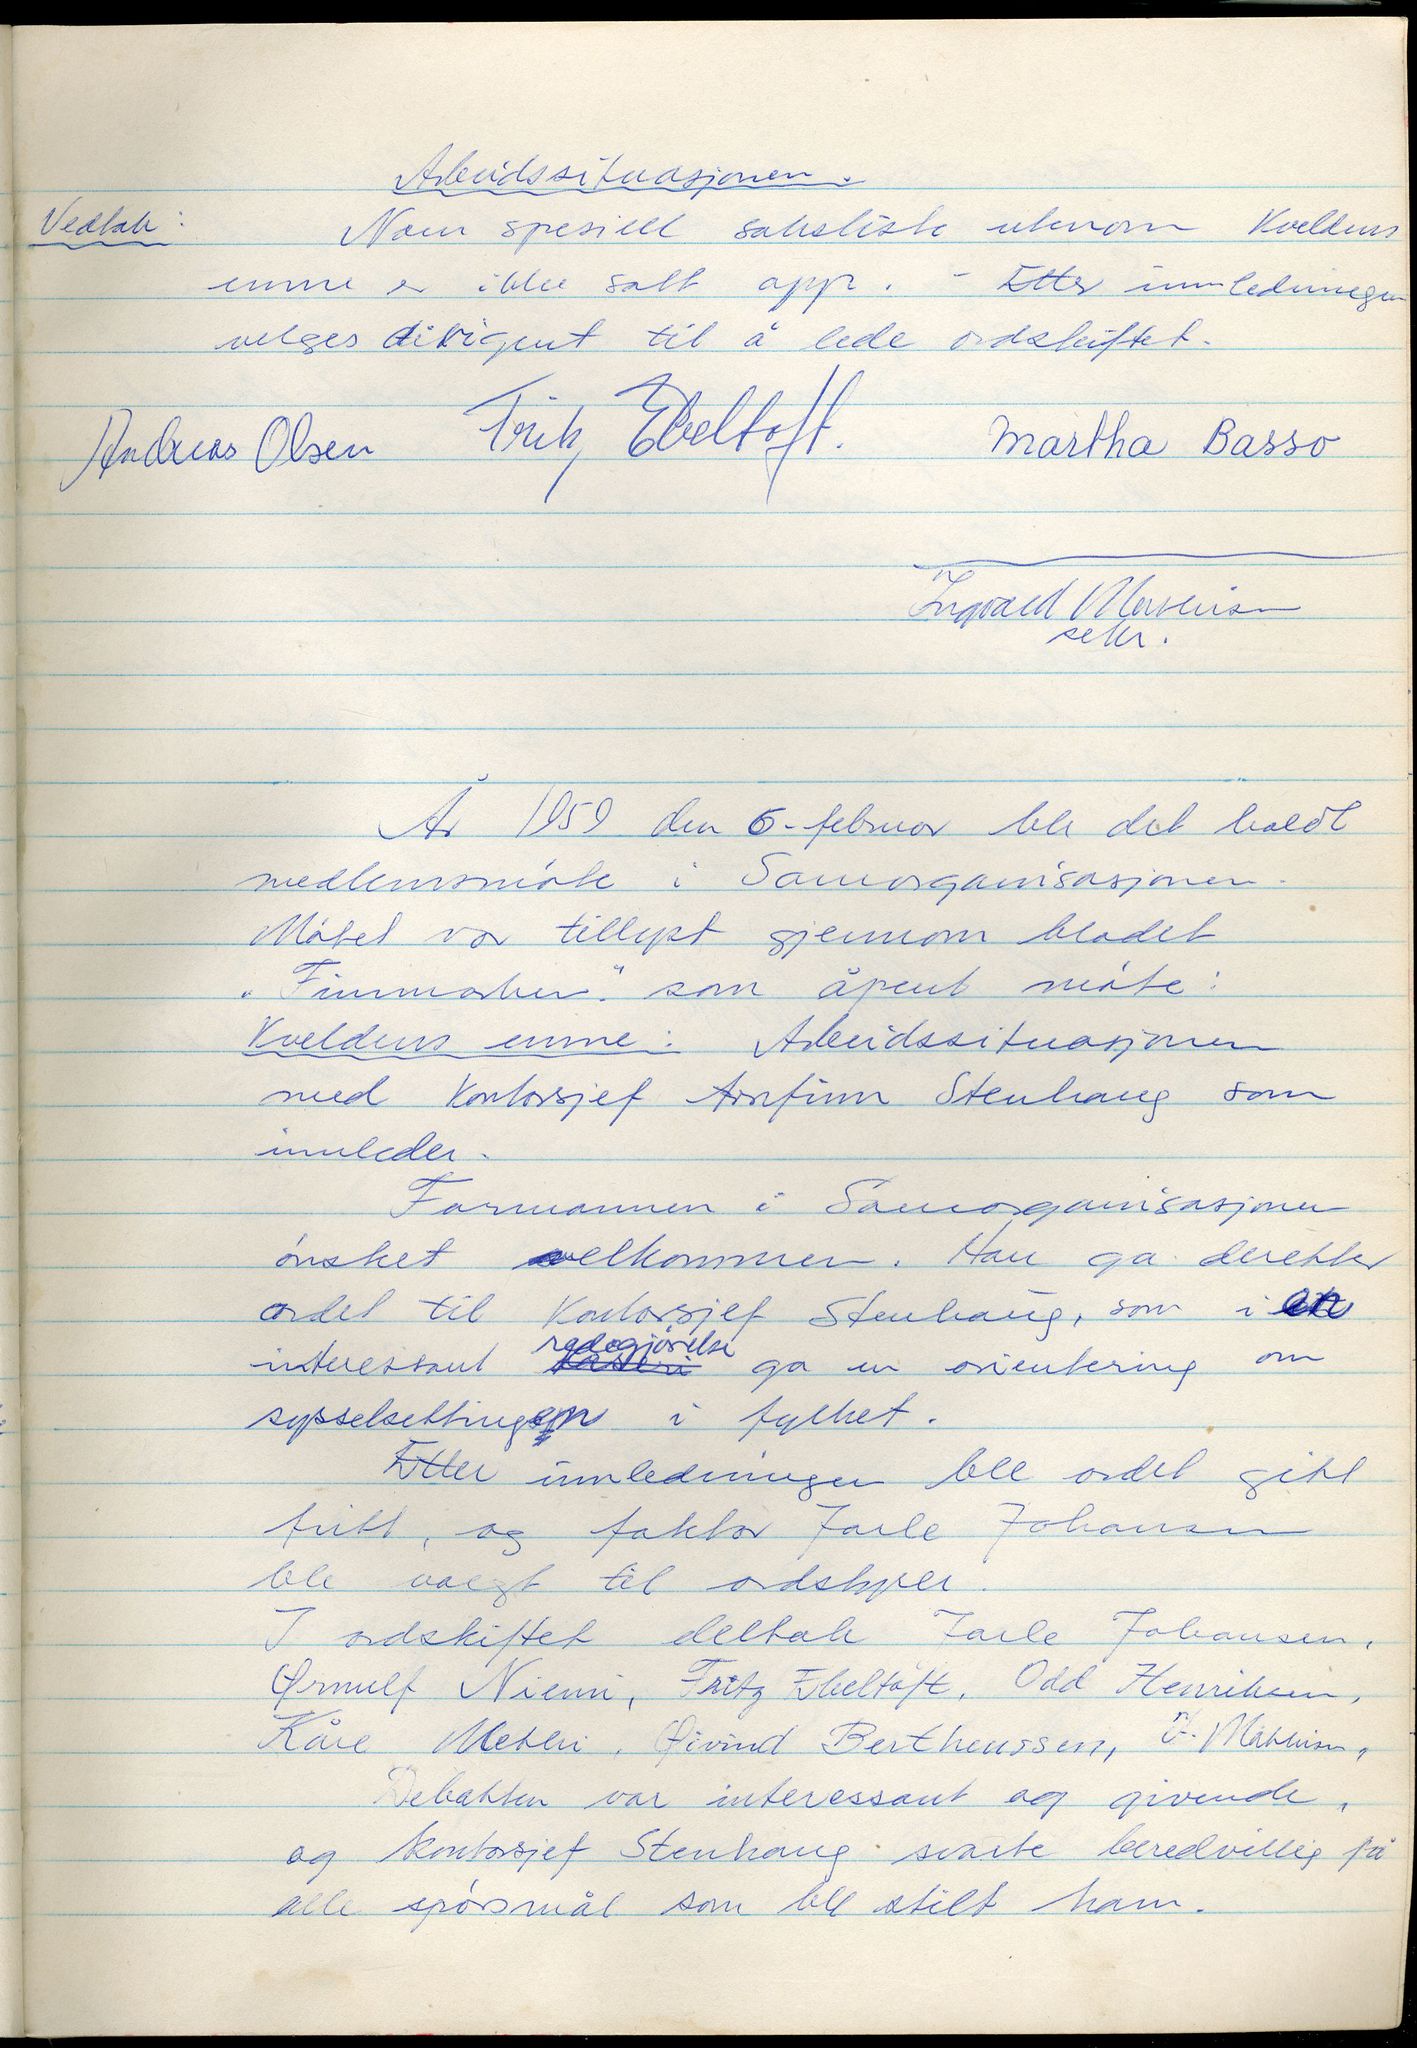 Arbeidssituasjonen.
Vedtak: Noen spesiell saksliste utenom kveldens
emne er ikke satt opp. - Etter innledningen
velges dirigent til å lede ordskiftet.
Andreas Olsen Fritz Ebeltoft. Martha Basso
Ingvald Mathisen
sekr.
År 1959 den 6. februar ble det holdt
medlemsmöte i Samorganisasjonen.
Mötet var tillyst gjennom bladet
"Finnmarken" som åpent möte:
Kveldens emne: Arbeidssituasjonen
med kontorsjef Arnfinn Stenhaug som
innleder.
Formannen i Samorganisasjonen
önsket velkommen. Han ga deretter
ordet til kontorsjef Stenhaug, som i en
interessant redogjörelse ga en orientering om
sysselsettingen i fylket.
Etter innledningen ble ordet gitt
fritt, og faktor Jarle Johansen
ble valgt til ordstyrer.
I ordskiftet deltok Jarle Johansen,
Ørnulf Niemi, Fritz Ebeltoft, Odd Henriksen,
Kåre Methi, Øivind Bertheussen, I. Mathisen.
Debatten var interessant og givende,
og kontorsjef Stenhaug svarte beredvillig på
alle spörsmål som ble stilt ham.